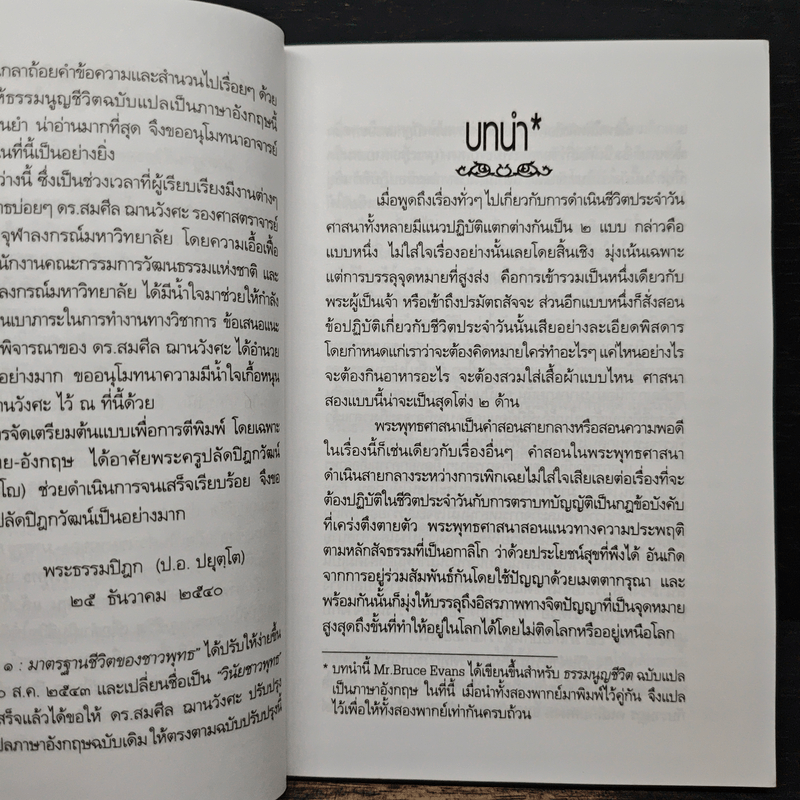 เกลาถ้อยคำข้อความและสำนวนไปเรื่อยๆ ด้วย
ห้ธรรมนูญชีวิตฉบับแปลเป็นภาษาอังกฤษนี้
นยำ น่าอ่านมากที่สุด จึงขออนุโมทนาอาจารย์
นที่นี้เป็นอย่างยิ่ง
ว่างนี้ ซึ่งเป็นช่วงเวลาที่ผู้เรียบเรียงมีงานต่างๆ
าธบ่อยๆ ดร.สมศีล ฌานวังศะ รองศาสตราจารย์
จุฬาลงกรณ์มหาวิทยาลัย โดยความเอื้อเฟื้อ
นักงานคณะกรรมการวัฒนธรรมแห่งชาติ และ
ลงกรณ์มหาวิทยาลัย ได้มีน้ำใจมาช่วยให้กำลัง
นเบาภาระในการทำงานทางวิชาการ ข้อเสนอแนะ
พิจารณาของ ดร.สมศีล ฌานวังศะ ได้อำนวย
อย่างมาก ขออนุโมทนาความมีน้ำใจเกื้อหนุน
านวังศะ ไว้ ณ ที่นี้ด้วย
ารจัดเตรียมต้นแบบเพื่อการตีพิมพ์ โดยเฉพาะ
าย-อังกฤษ ได้อาศัยพระครูปลัดปิฎกวัฒน์
โญ) ช่วยดำเนินการจนเสร็จเรียบร้อย จึงขอ
ปลัดปิฎกวัฒน์เป็นอย่างมาก
พระธรรมปิฎก (ป.อ. ปยุตฺโต)
๒๕ ธันวาคม ๒๕๔๐
๑ : มาตรฐานชีวิตของชาวพุทธ" ได้ปรับให้ง่ายขึ้น
๐ ส.ค. ๒๕๔๓ และเปลี่ยนชื่อเป็น "วินัยชาวพุทธ"
สร็จแล้วได้ขอให้ ดร.สมศีล ฌานวังศะ ปรับปรุง
ปลภาษาอังกฤษฉบับเดิม ให้ตรงตามฉบับปรับปรุงนี้
บทนำ*
เมื่อพูดถึงเรื่องทั่วๆ ไปเกี่ยวกับการดำเนินชีวิตประจำวัน
ศาสนาทั้งหลายมีแนวปฏิบัติแตกต่างกันเป็น ๒ แบบ กล่าวคือ
แบบหนึ่ง ไม่ใส่ใจเรื่องอย่างนั้นเลยโดยสิ้นเชิง มุ่งเน้นเฉพาะ
แต่การบรรลุจุดหมายที่สูงส่ง คือการเข้ารวมเป็นหนึ่งเดียวกับ
พระผู้เป็นเจ้า หรือเข้าถึงปรมัตถสัจจะ ส่วนอีกแบบหนึ่งก็สั่งสอน
ข้อปฏิบัติเกี่ยวกับชีวิตประจำวันนั้นเสียอย่างละเอียดพิสดาร
โดยกำหนดแก่เราว่าจะต้องคิดหมายใครทำอะไรๆ แค่ไหนอย่างไร
จะต้องกินอาหารอะไร จะต้องสวมใส่เสื้อผ้าแบบไหน ศาสนา
สองแบบนี้น่าจะเป็นสุดโต่ง ๒ ด้าน
พระพุทธศาสนาเป็นคำสอนสายกลางหรือสอนความพอดี
ในเรื่องนี้ก็เช่นเดียวกับเรื่องอื่นๆ คำสอนในพระพุทธศาสนา
ดำเนินสายกลางระหว่างการเพิกเฉยไม่ใส่ใจเสียเลยต่อเรื่องที่จะ
ต้องปฏิบัติในชีวิตประจำวันกับการตราบทบัญญัติเป็นกฎข้อบังคับ
ที่เคร่งตึงตายตัว พระพุทธศาสนาสอนแนวทางความประพฤติ
ตามหลักสัจธรรมที่เป็นอกาลิโก ว่าด้วยประโยชน์สุขที่พึงได้ อันเกิด
จากการอยู่ร่วมสัมพันธ์กันโดยใช้ปัญญาด้วยเมตตากรุณา และ
พร้อมกันนั้นก็มุ่งให้บรรลุถึงอิสรภาพทางจิตปัญญาที่เป็นจุดหมาย
สูงสุดถึงขั้นที่ทำให้อยู่ในโลกได้โดยไม่ติดโลกหรืออยู่เหนือโลก
* บทนำนี้ Mr.Bruce Evans ได้เขียนขึ้นสำหรับ ธรรมนูญชีวิต ฉบับแปล
เป็นภาษาอังกฤษ ในที่นี้ เมื่อนำทั้งสองพากย์มาพิมพ์ไว้คู่กัน จึงแปล
ไว้เพื่อให้ทั้งสองพากย์เท่ากันครบถ้วน